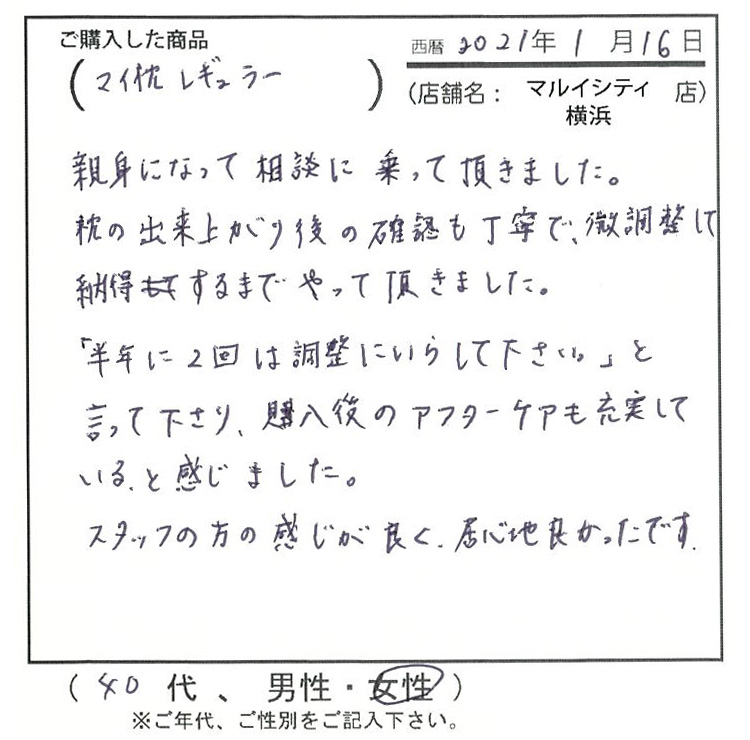 ご購入した商品
西暦 2021年 1月16日
(マイ枕 レギュラー)
(店舗名: マルイシティ横浜 店)
親身になって相談に乗って頂きました。
枕の出来上がり後の確認も丁寧で、微調整して
納得するまでやって頂きました。
「半年に2回は調整にいらして下さい。」と
言って下さり、購入後のアフターケアも充実して
いる、と感じました。
スタッフの方の感じが良く、居心地良かったです。
(40代、男性・女性)
※ご年代、ご性別をご記入下さい。